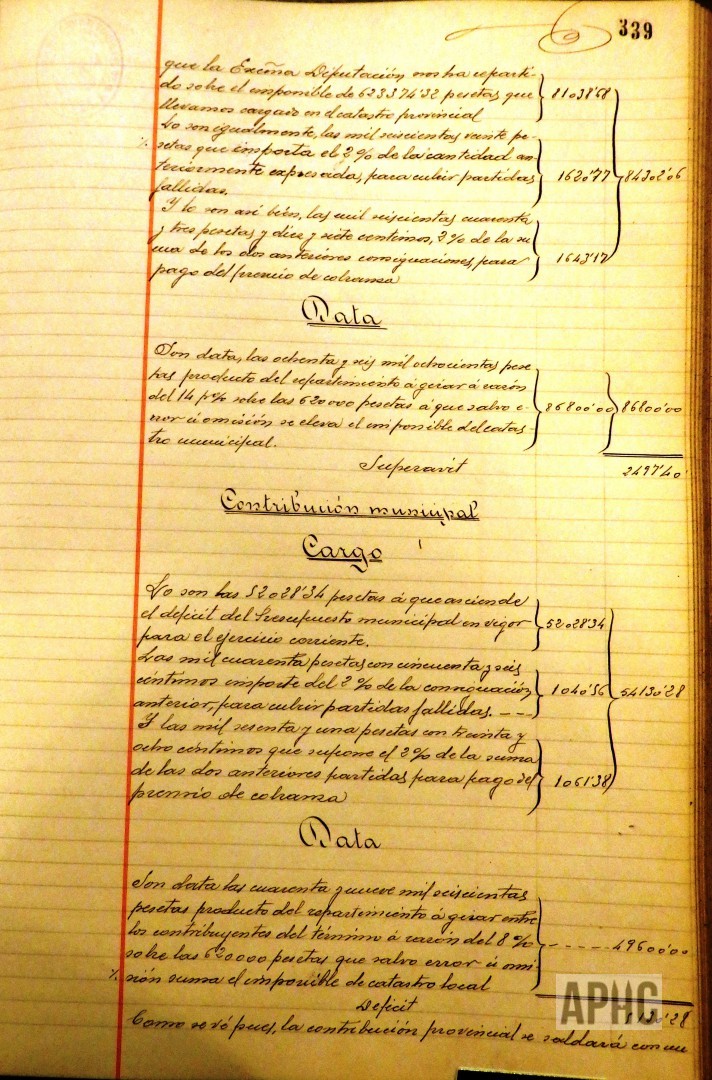 339
que la Excma Diputación nos ha reparti-
do sobre el imponible de 623374'32 pesetas que
llevamos cargado en el catastro provincial
81038'68
Lo son igualmente, las mil seiscientas veinte pe-
setas que importa el 2% de la cantidad an-
teriormente expresada, para cubrir partidas
fallidas.
1620'77
84302'06
Y lo son así bien, las mil seiscientas cuarenta
y tres pesetas y diez y siete centimos, 2% de la su
ma de los dos anteriores consignaciones, para
pago del premio de cobranza
1643'17
Data
Son data, las ochenta y seis mil ochocientas pese
tas producto del repartimiento á girar á razón
del 14 p% sobre las 620000 pesetas á que salvo e-
rror ú omisión se eleva el imponible del catas-
tro municipal.
86800'00
86800'00
Superavit
2497'40
Contribución municipal
Cargo
Lo son las 52028'34 pesetas á que asciende
el deficit del Presupuesto municipal en vigor
para el ejercicio corriente.
52028'34
Las mil cuarenta pesetas con cincuenta y seis
céntimos importe del 2% de la consignación
anterior, para cubrir partidas fallidas. ---
1040'56
54130'28
Y las mil sesenta y una pesetas con treinta y
ocho céntimos que supone el 2% de la suma
de las dos anteriores partidas para pago del
premio de cobranza
1061'38
Data
Son data las cuarenta y nueve mil seiscientas
pesetas producto del repartimiento á girar entre
los contribuyentes del término á razón del 8%
sobre las 620000 pesetas que salvo error ú omi-
sión suma el imponible de catastro local
49600'00
Deficit
APHG
Como se vé pues, la contribución provincial se saldará con un